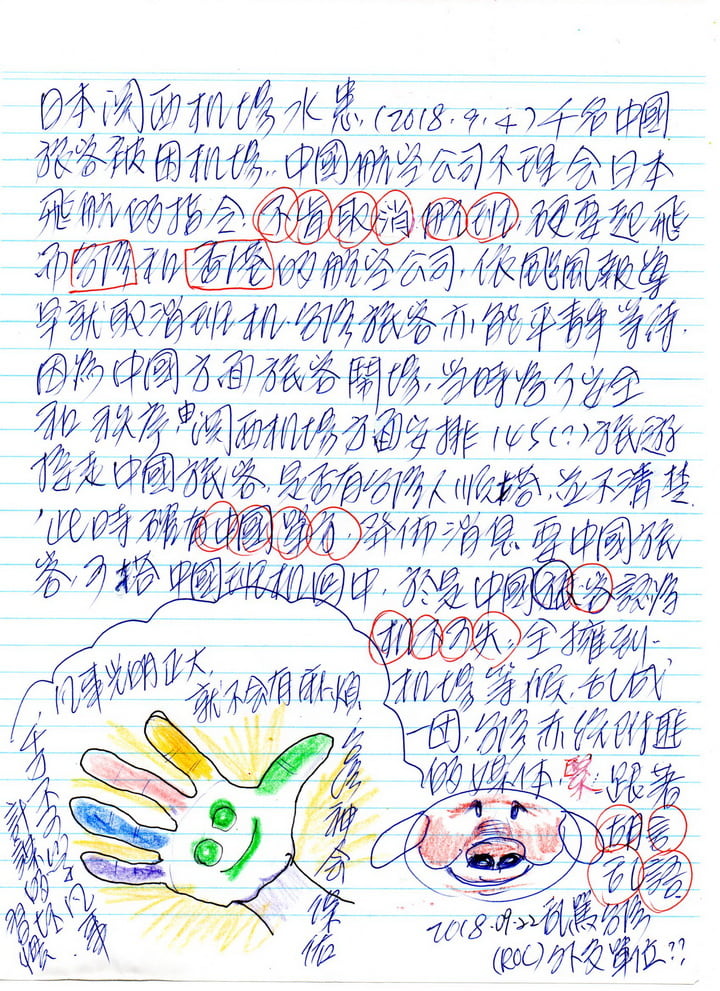 日本関西机場水患,(2018.9.4)千名中國
旅客被困机場..中國航空公司不理会日本
飛航的指令,不肯取消航班,硬要起飛
而台灣和香港的航空公司,依颱風報導
早就取消班机.台灣旅客亦能平靜等待.
因為中國方面旅客鬧場,当時為了安全
和秩序由関西机場方面安排145(?)旅遊
接走中國旅客,是否有台灣人順搭,並不清楚.
此時確有中國單方,發佈消息要中國旅
客,可搭中國班机回中,於是中國旅客認為
机不可失,全擁到
机場等候,乱成
一团,台灣亦紛附匪
的媒体,緊跟著
胡言
乱語
2018.09.22乱罵台灣
(ROC)外交單位??
凡事光明正大,
就不会有麻煩.
神会保佑
千万不可凡事
計謀的壞習慣